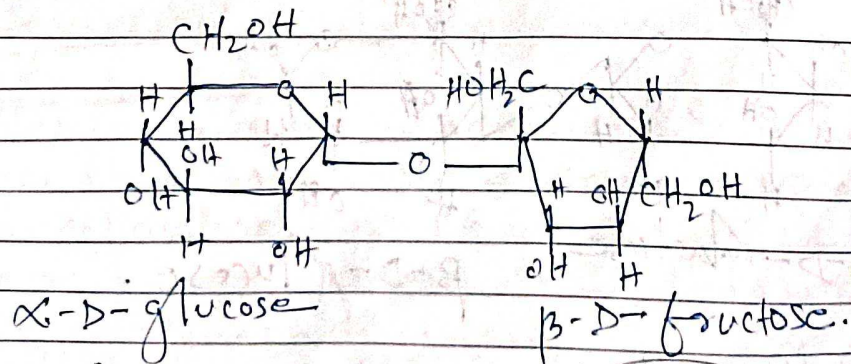 CH2OH
H O H HOH2C O H
H
OH H O H OH CH2OH
OH
H OH OH H
α-D-glucose β-D-fructose.